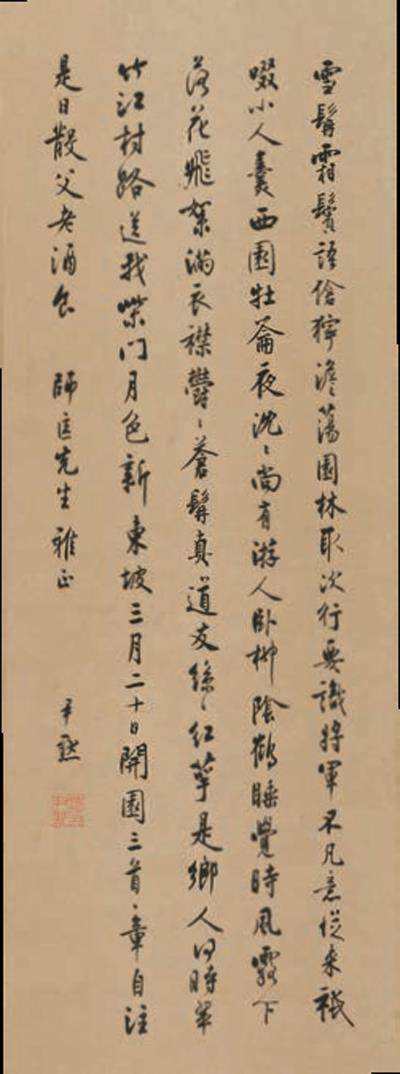 雪髯霜鬢語傖獰澹蕩園林取次行要識將軍不凡意從來秖
啜小人羹西園牡龠夜沈〻尚有游人卧柳陰鶴睡覺時風露下
落花飛絮滿衣襟鬱〻蒼髯真道友絲〻紅萼是鄉人何時翠
竹江村路送我柴門月色新東坡三月二十日開園三首〻章自注
是日散父老酒食 師匡先生雅正
尹默